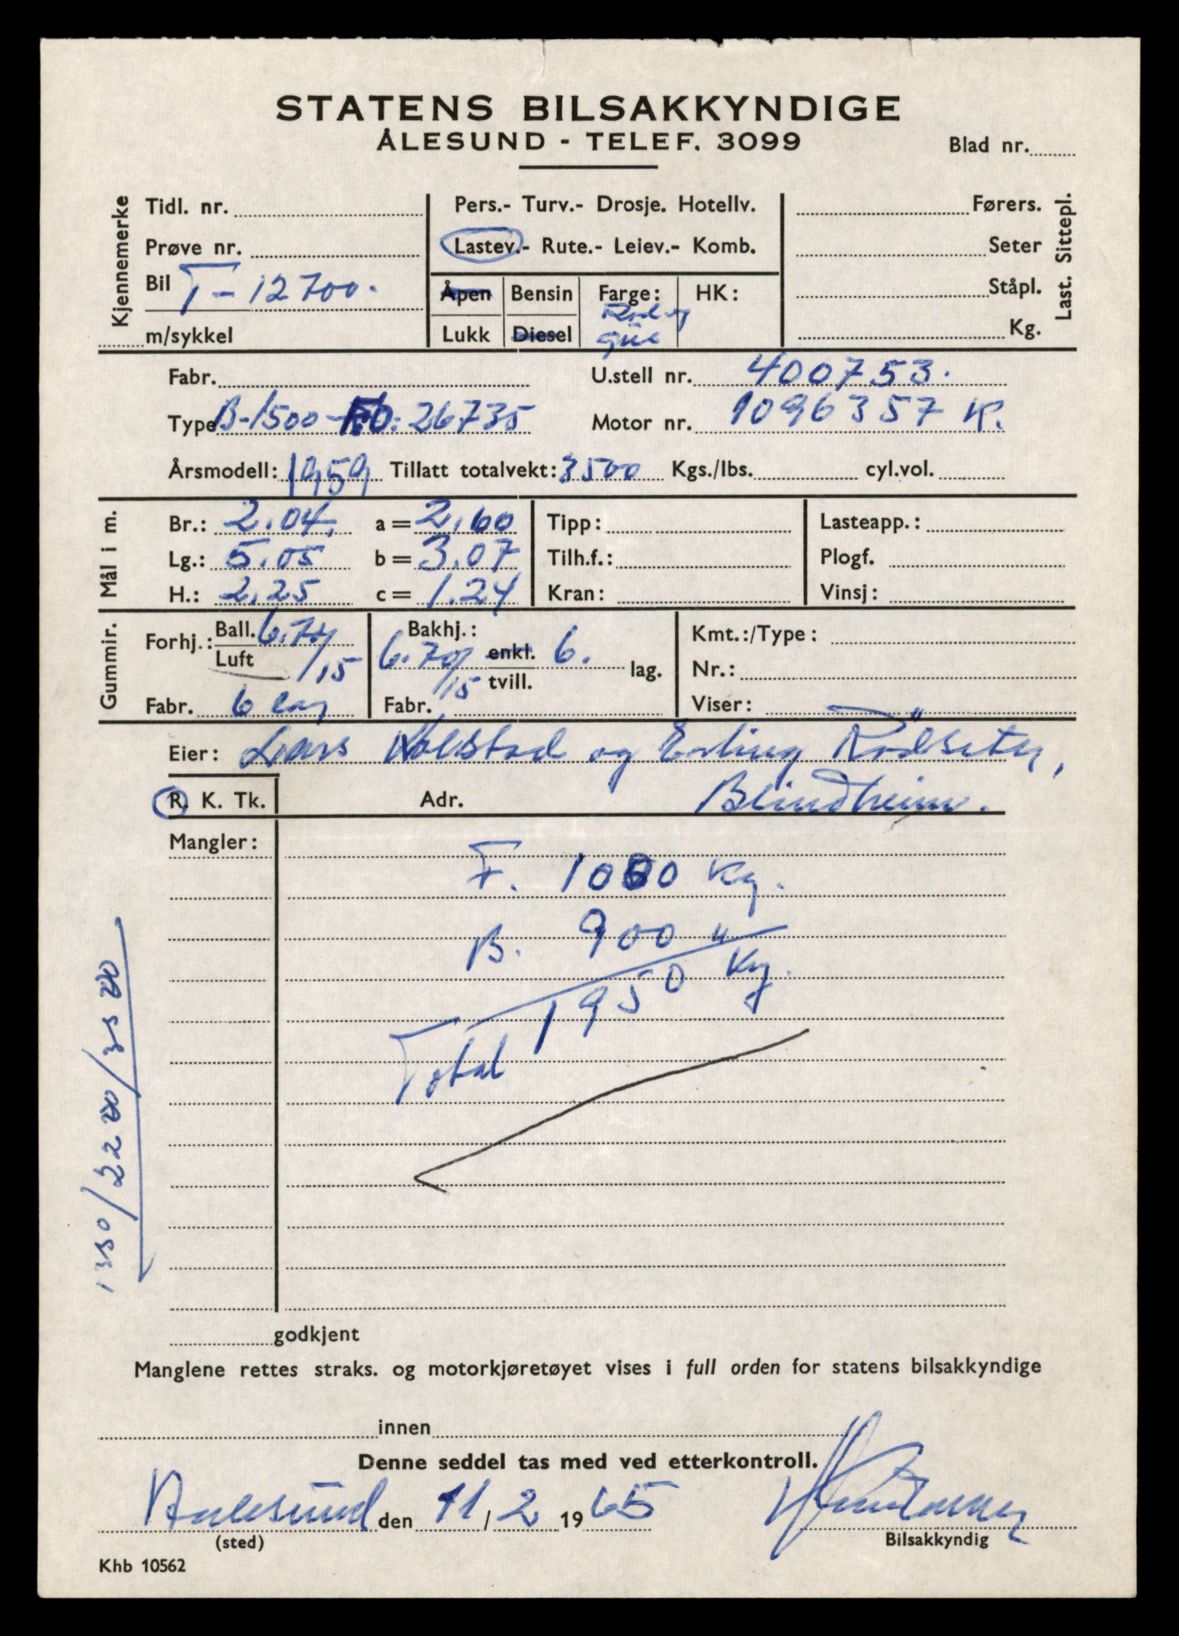 STATENS BILSAKKYNDIGE
ÅLESUND - TELEF. 3099
Blad nr.
Kjennemerke
Tidl. nr.
Prøve nr.
Bil T-12700.
m/sykkel
Pers.- Turv.- Drosje. Hotellv.
Lastev.- Rute.- Leiev.- Komb.
Åpen Bensin Farge: HK:
Lukk Diesel
Førers.
Seter
Ståpl.
Kg.
Last. Sittepl.
Fabr. U.stell nr. 400753.
Type B-1500 - FD: 26735 Motor nr. 1096357 K.
Årsmodell: 1959 Tillatt totalvekt: 3500 Kgs./lbs. cyl.vol.
Mål i m.
Br.: 2.04. a = 2,60 Tipp: Lasteapp.:
Lg.: 5.05 b = 3.07 Tilh.f.: Plogf.
H.: 2,25 c = 1.24 Kran: Vinsj:
Gummir.
Forhj.: Ball. 6.70/15
Luft
Fabr. 6 lag
Bakhj.:
6.70/15 enkl. 6. lag.
tvill.
Fabr.
Kmt.:/Type:
Nr.:
Viser:
Eier: Lars Kolstad og Erling Rödseter,
R. K. Tk. Adr. Blindheim.
Mangler:
F. 1050 Kg.
B. 900 "
Total 1950 Kg.
1350/2200/3500
godkjent
Manglene rettes straks. og motorkjøretøyet vises i full orden for statens bilsakkyndige
innen
Denne seddel tas med ved etterkontroll.
Aalesund den 11/2 1965
(sted)
Bilsakkyndig
Khb 10562